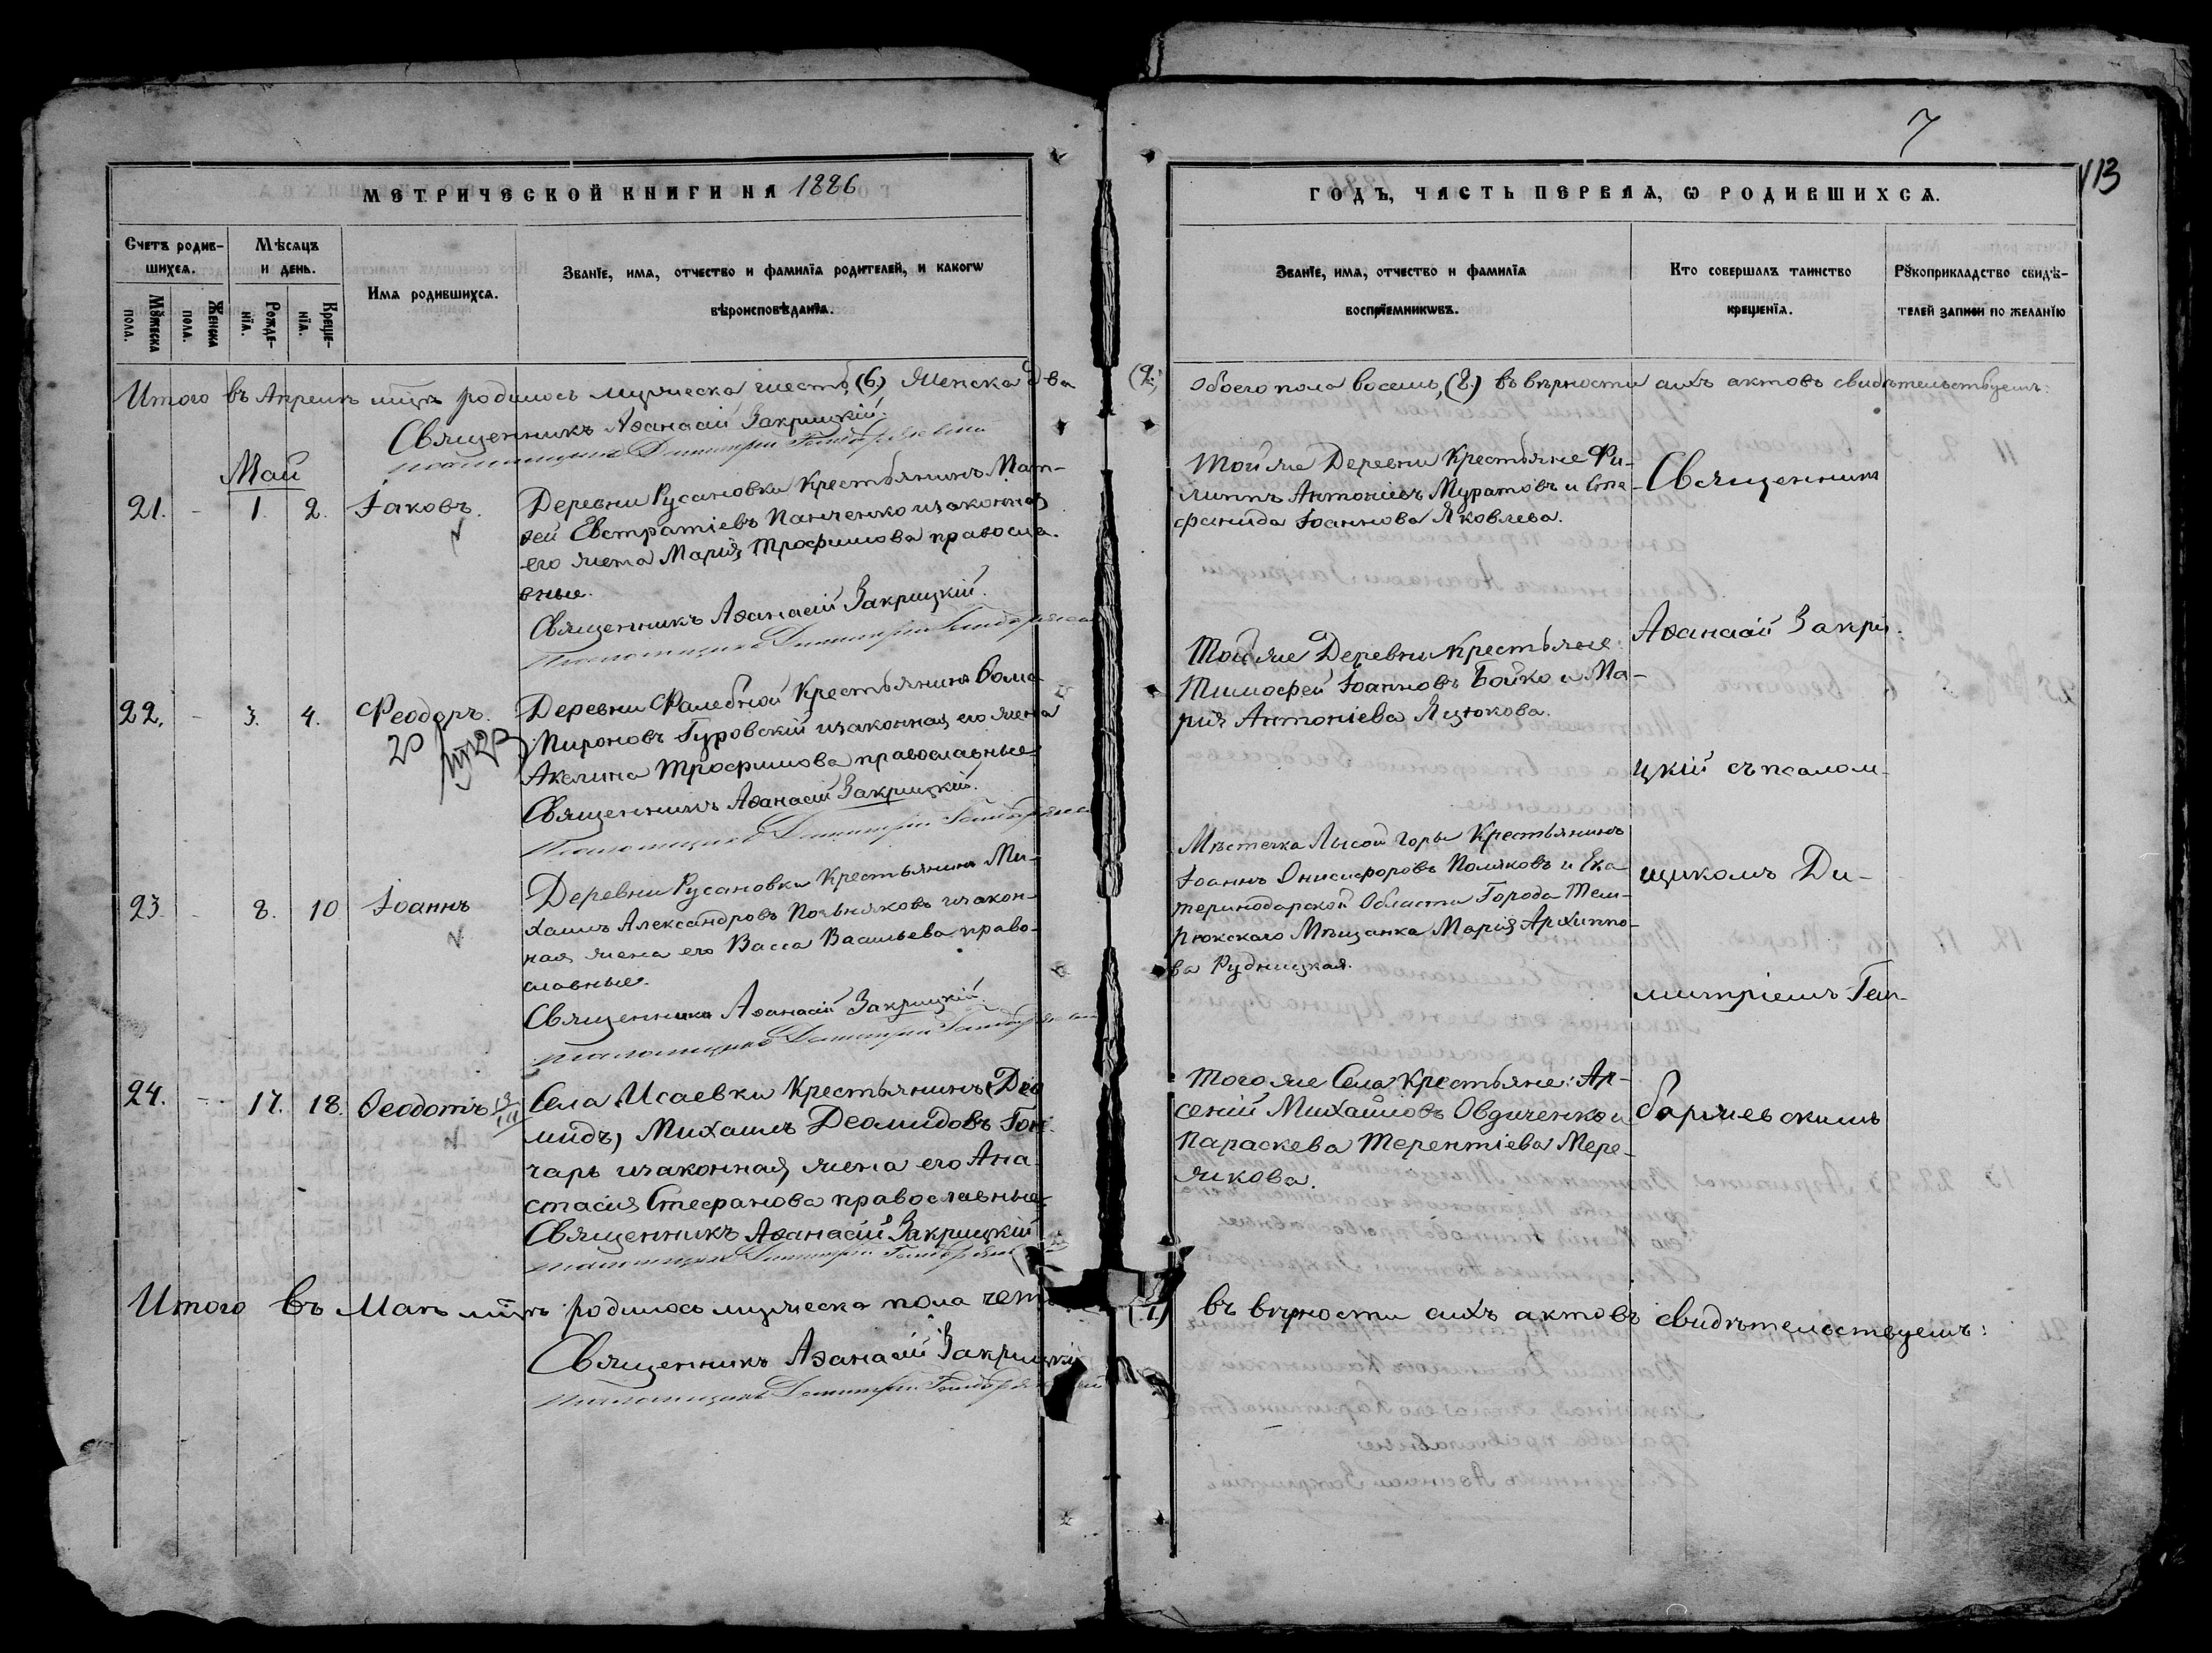 7
113
МЕТРИЧЕСКОЙ КНИГИ НА 1886
ГОДЪ, ЧАСТЬ ПЕРВАЯ, Ѡ РОДИВШИХСѦ.
Счетъ родив-
шихсѧ.
Мꙋжеска
пола.
Женска
пола.
Мѣсяцъ
и день.
Рожде-
нїѧ.
Креще-
нїѧ.
Имѧ родившихсѧ.
Званїе, имѧ, отчество и фамилїѧ родителей, и какогѡ
вѣроисповѣданїѧ.
Званїе, имѧ, отчество и фамилїѧ
воспрїемникѡвъ.
Кто совершалъ таинство
крещенїѧ.
Рꙋкоприкладство свидѣ-
телей записи по желанїю
Итого въ Апрелѣ мцѣ родилось мужеска шесть, (6) женска два
(2.) обоего пола восемь, (8.) въ вѣрности сихъ актовъ свидѣтельствуемъ:
Священникъ Аѳанасій Закрицкій.
Псаломщикъ Димитрій
Май
21. - 1. 2. Іаковъ.
Деревни Русановки Крестьянинъ Мат-
вей Евстратіевъ Панченко и законная
его жена Марія Трофимова правосла-
вные.
Священникъ Аѳанасій Закрицкій.
Псаломщикъ Димитрій
Той же Деревни Крестьяне Фи-
липпъ Антоніевъ Муратовъ и Сте-
фанида Іоаннова Яковлева.
Священникъ
22. - 3. 4. Феодоръ.
Деревни Крестьянинъ Ѳома
Мироновъ Гуровскій и законная его жена
Акилина Трофимова православные
Священникъ Аѳанасій Закрицкій.
Псаломщикъ Димитрій
Той же Деревни Крестьяне
Тимофей Іоанновъ Бойко и Ма-
рія Антоніева Яцюкова.
Аѳанасій Закри-
цкій съ псалом-
23. - 8. 10 Іоаннъ
Деревни Русановки Крестьянинъ Ми-
хаилъ Александровъ и закон-
ная жена его Васса Васильева право-
славные.
Священникъ Аѳанасій Закрицкій.
Псаломщикъ Димитрій
Мѣстечка Лысой Горы Крестьянинъ
Іоаннъ Онисифоровъ Поляковъ и Ека-
теринодарской Области Города Тем-
рюкскаго Мѣщанка Марія Архиппо-
ва Рудницкая.
щикомъ Ди-
митріемъ Гем-
24. - 17. 18. Ѳеодотъ
Села Исаевки Крестьянинъ (Део
мидъ) Михаилъ Деомидовъ Гон-
чаръ и законная жена его Ана-
стасія Стефанова православные.
Священникъ Аѳанасій Закрицкій
Псаломщикъ Димитрій
Того же Села Крестьяне: Ар-
сеній Михайловъ Овдиченко и
Параскева Терентіева Мере-
жкова.
баржевскимъ
Итого въ Маѣ мцѣ родилось мужеска пола
въ вѣрности сихъ актовъ свидѣтельствуемъ:
Священникъ Аѳанасій Закрицкій
Псаломщикъ Димитрій